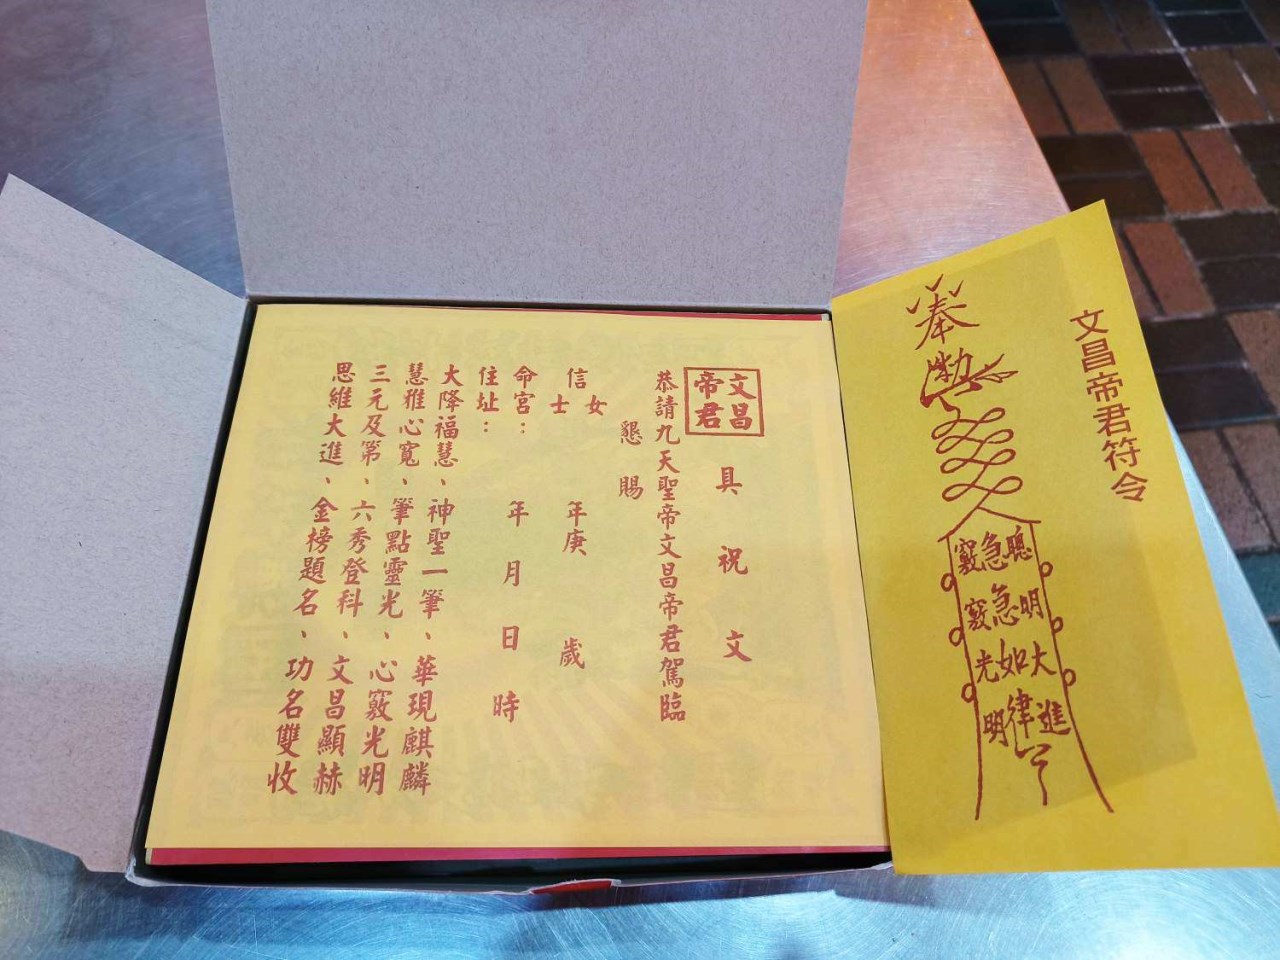 文昌帝君符令
奉
勅
聰明大進
急急如律
竅竅光明
文昌
帝君
具祝文
恭請九天聖帝文昌帝君駕臨
懇賜
信士
女
年庚 歲
命宮： 年 月 日 時
住址：
大降福慧、神聖一筆、華現麒麟
慧雅心寬、筆點靈光、心竅光明
三元及第、六秀登科、文昌顯赫
思維大進、金榜題名、功名雙收